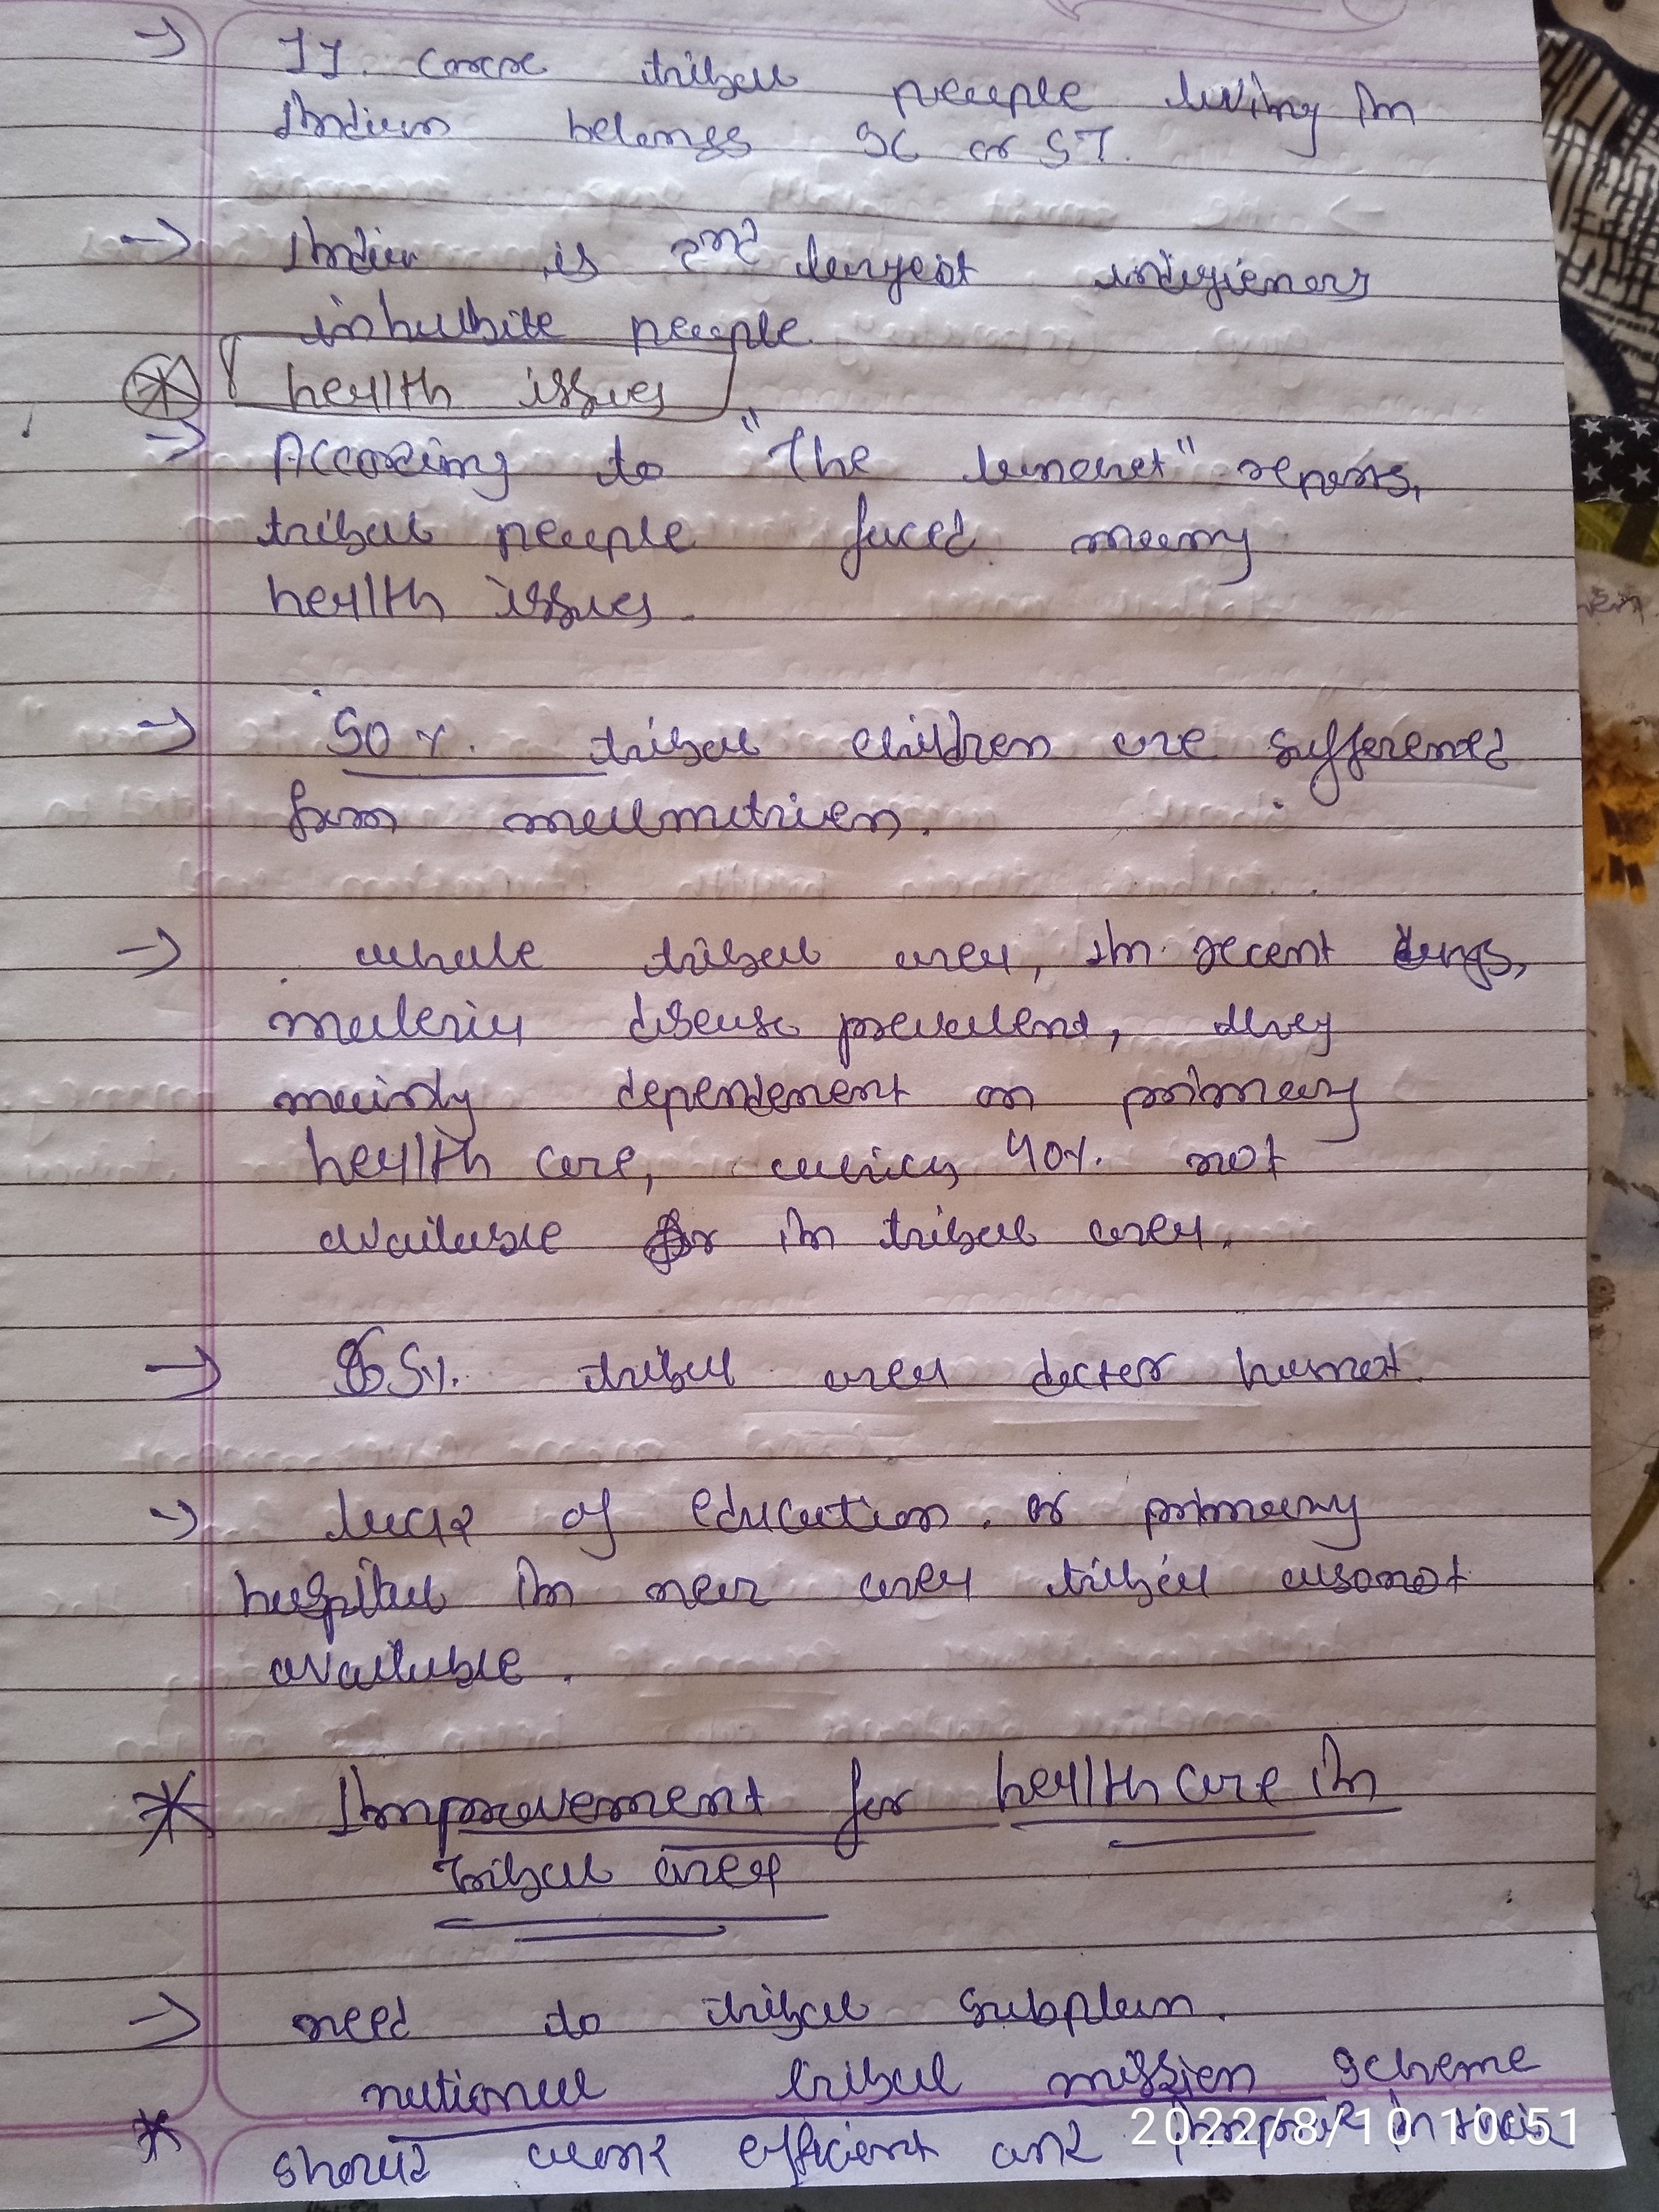 → 11. crore tribal people living in
Indian belongs SC or ST.
→ India is 2nd largest indigieners
inhabite people.
health issues
→ According to "The lancet" repors,
tribal people faced many
health issues.
→ 50 %. tribal children are sufferened
from malnutrien.
→ whole tribal area, In recent days,
maleria disease prevalent, they
mainly dependenent on primary
health care, which 40%. not
available in tribal area.
→ 85%. tribal area docter
→ lack of education. or primary
hospital in near area tribal also not
available.
* Improvement for health care in
Tribal area
→ need to tribal subplan.
national tribal mission scheme
* should work efficient and improve in
2022/8/10 10:51